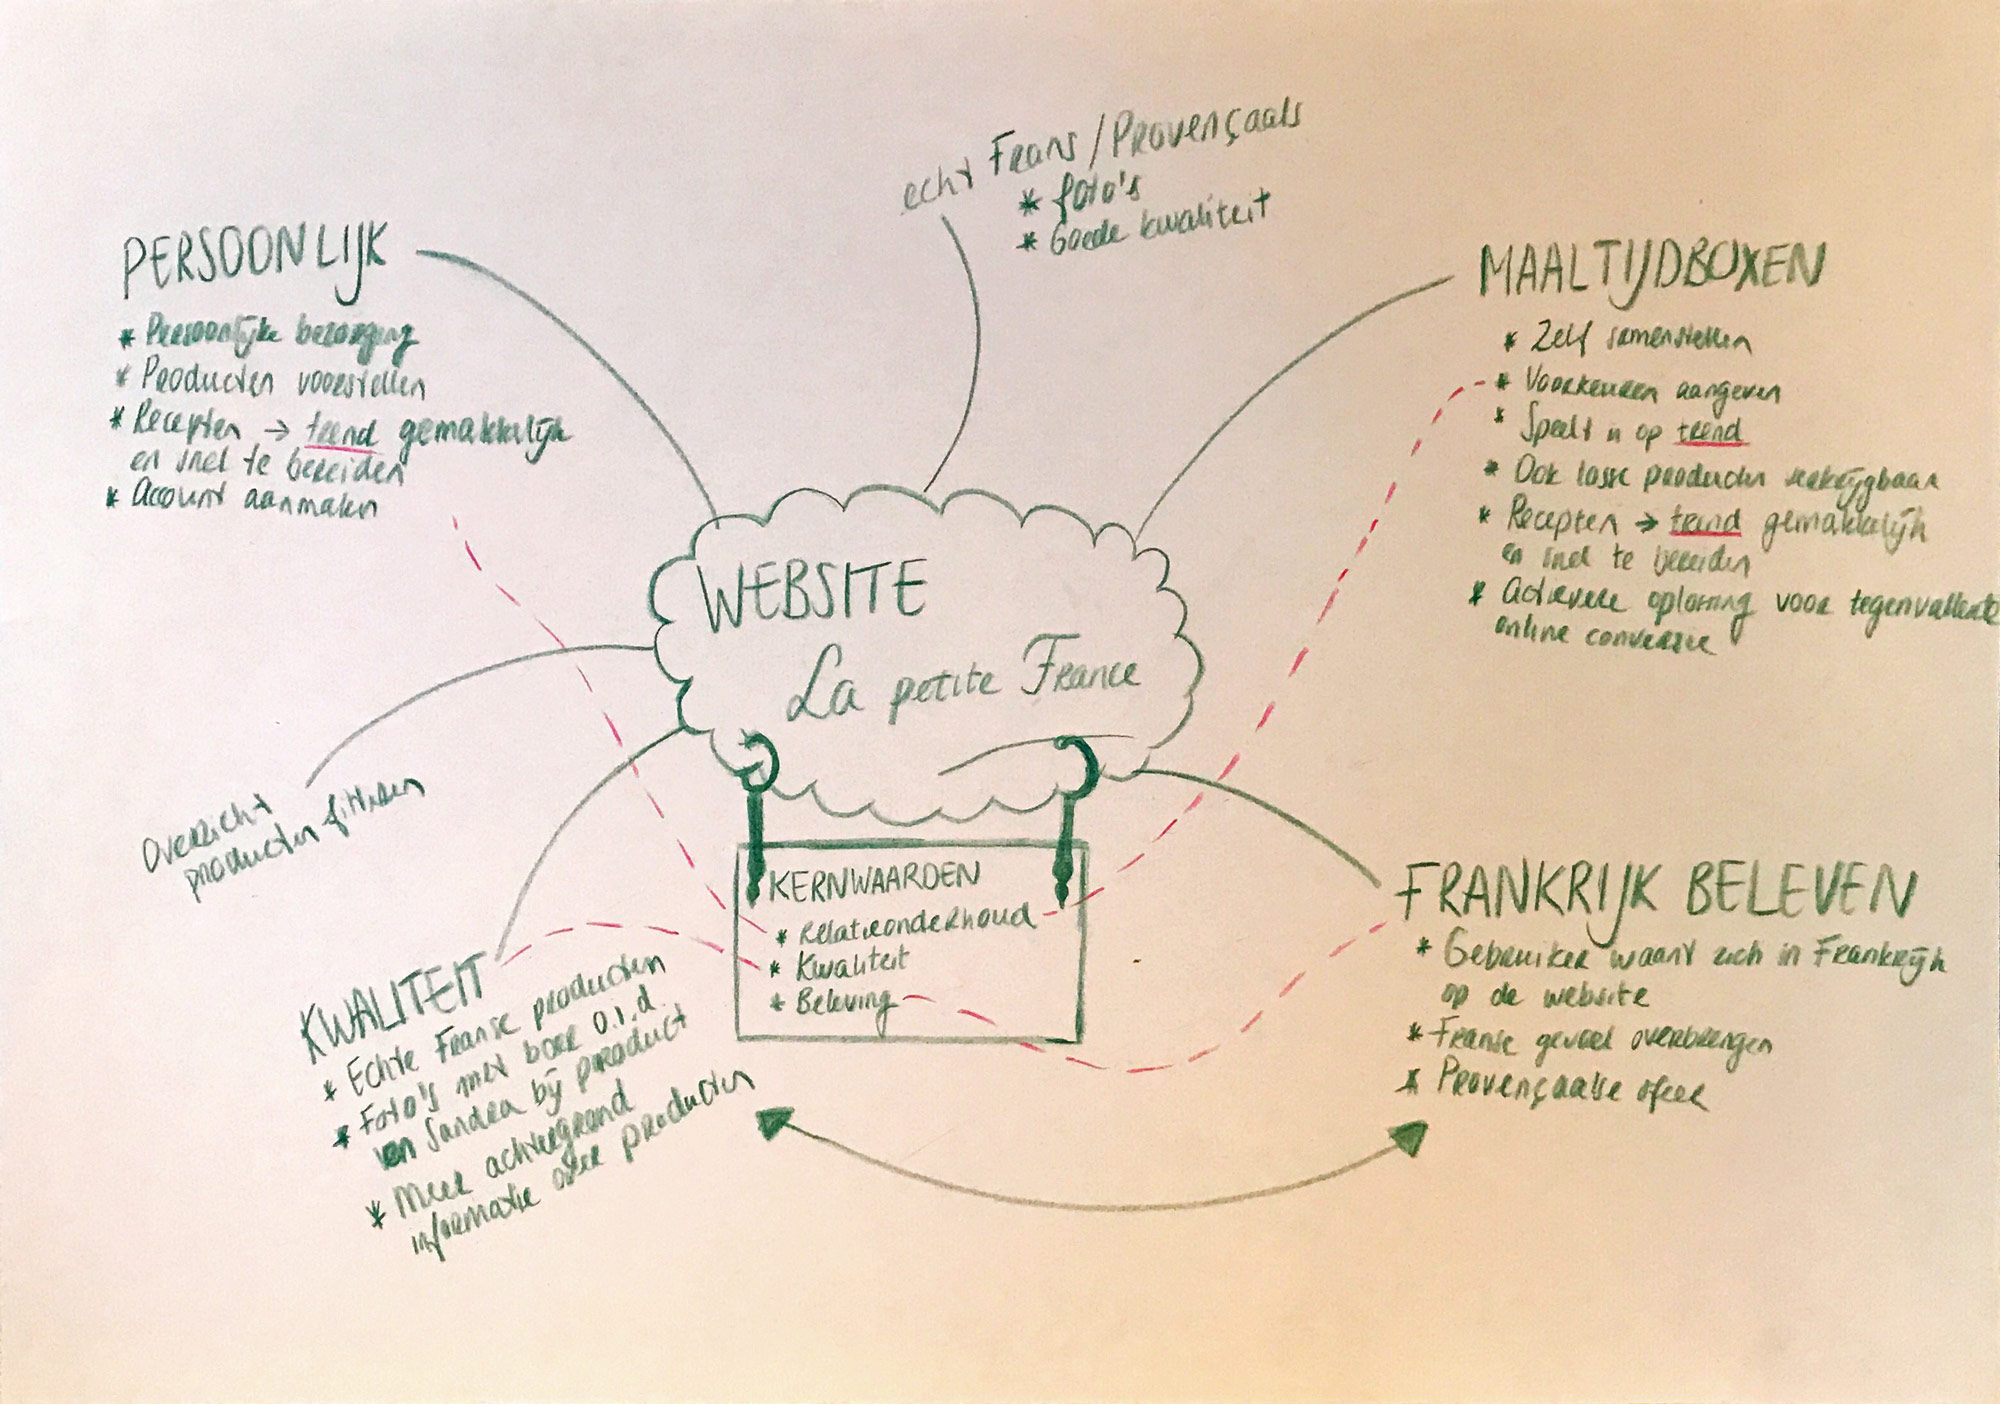 echt Frans/Provençaals
* foto's
* Goede kwaliteit
PERSOONLIJK
* Persoonlijke bezorging
* Producten voorstellen
* Recepten → trend gemakkelijk
en snel te bereiden
* Account aanmaken
MAALTIJDBOXEN
* Zelf samenstellen
* Voorkeuren aangeven
* Speelt in op trend
* Ook losse producten verkrijgbaar
* Recepten → trend gemakkelijk
en snel te bereiden
* Actievere oplossing voor tegenvallende
online conversie
WEBSITE
La petite France
Overzicht
producten filteren
KERNWAARDEN
* Relatieonderhoud
* Kwaliteit
* Beleving
FRANKRIJK BELEVEN
* Gebruiker waant zich in Frankrijk
op de website
* Franse gevoel overbrengen
* Provençaalse sfeer
KWALITEIT
* Echte Franse producten
* Foto's met boer o.i.d.
van Sandra bij product
* Meer achtergrond
informatie over producten